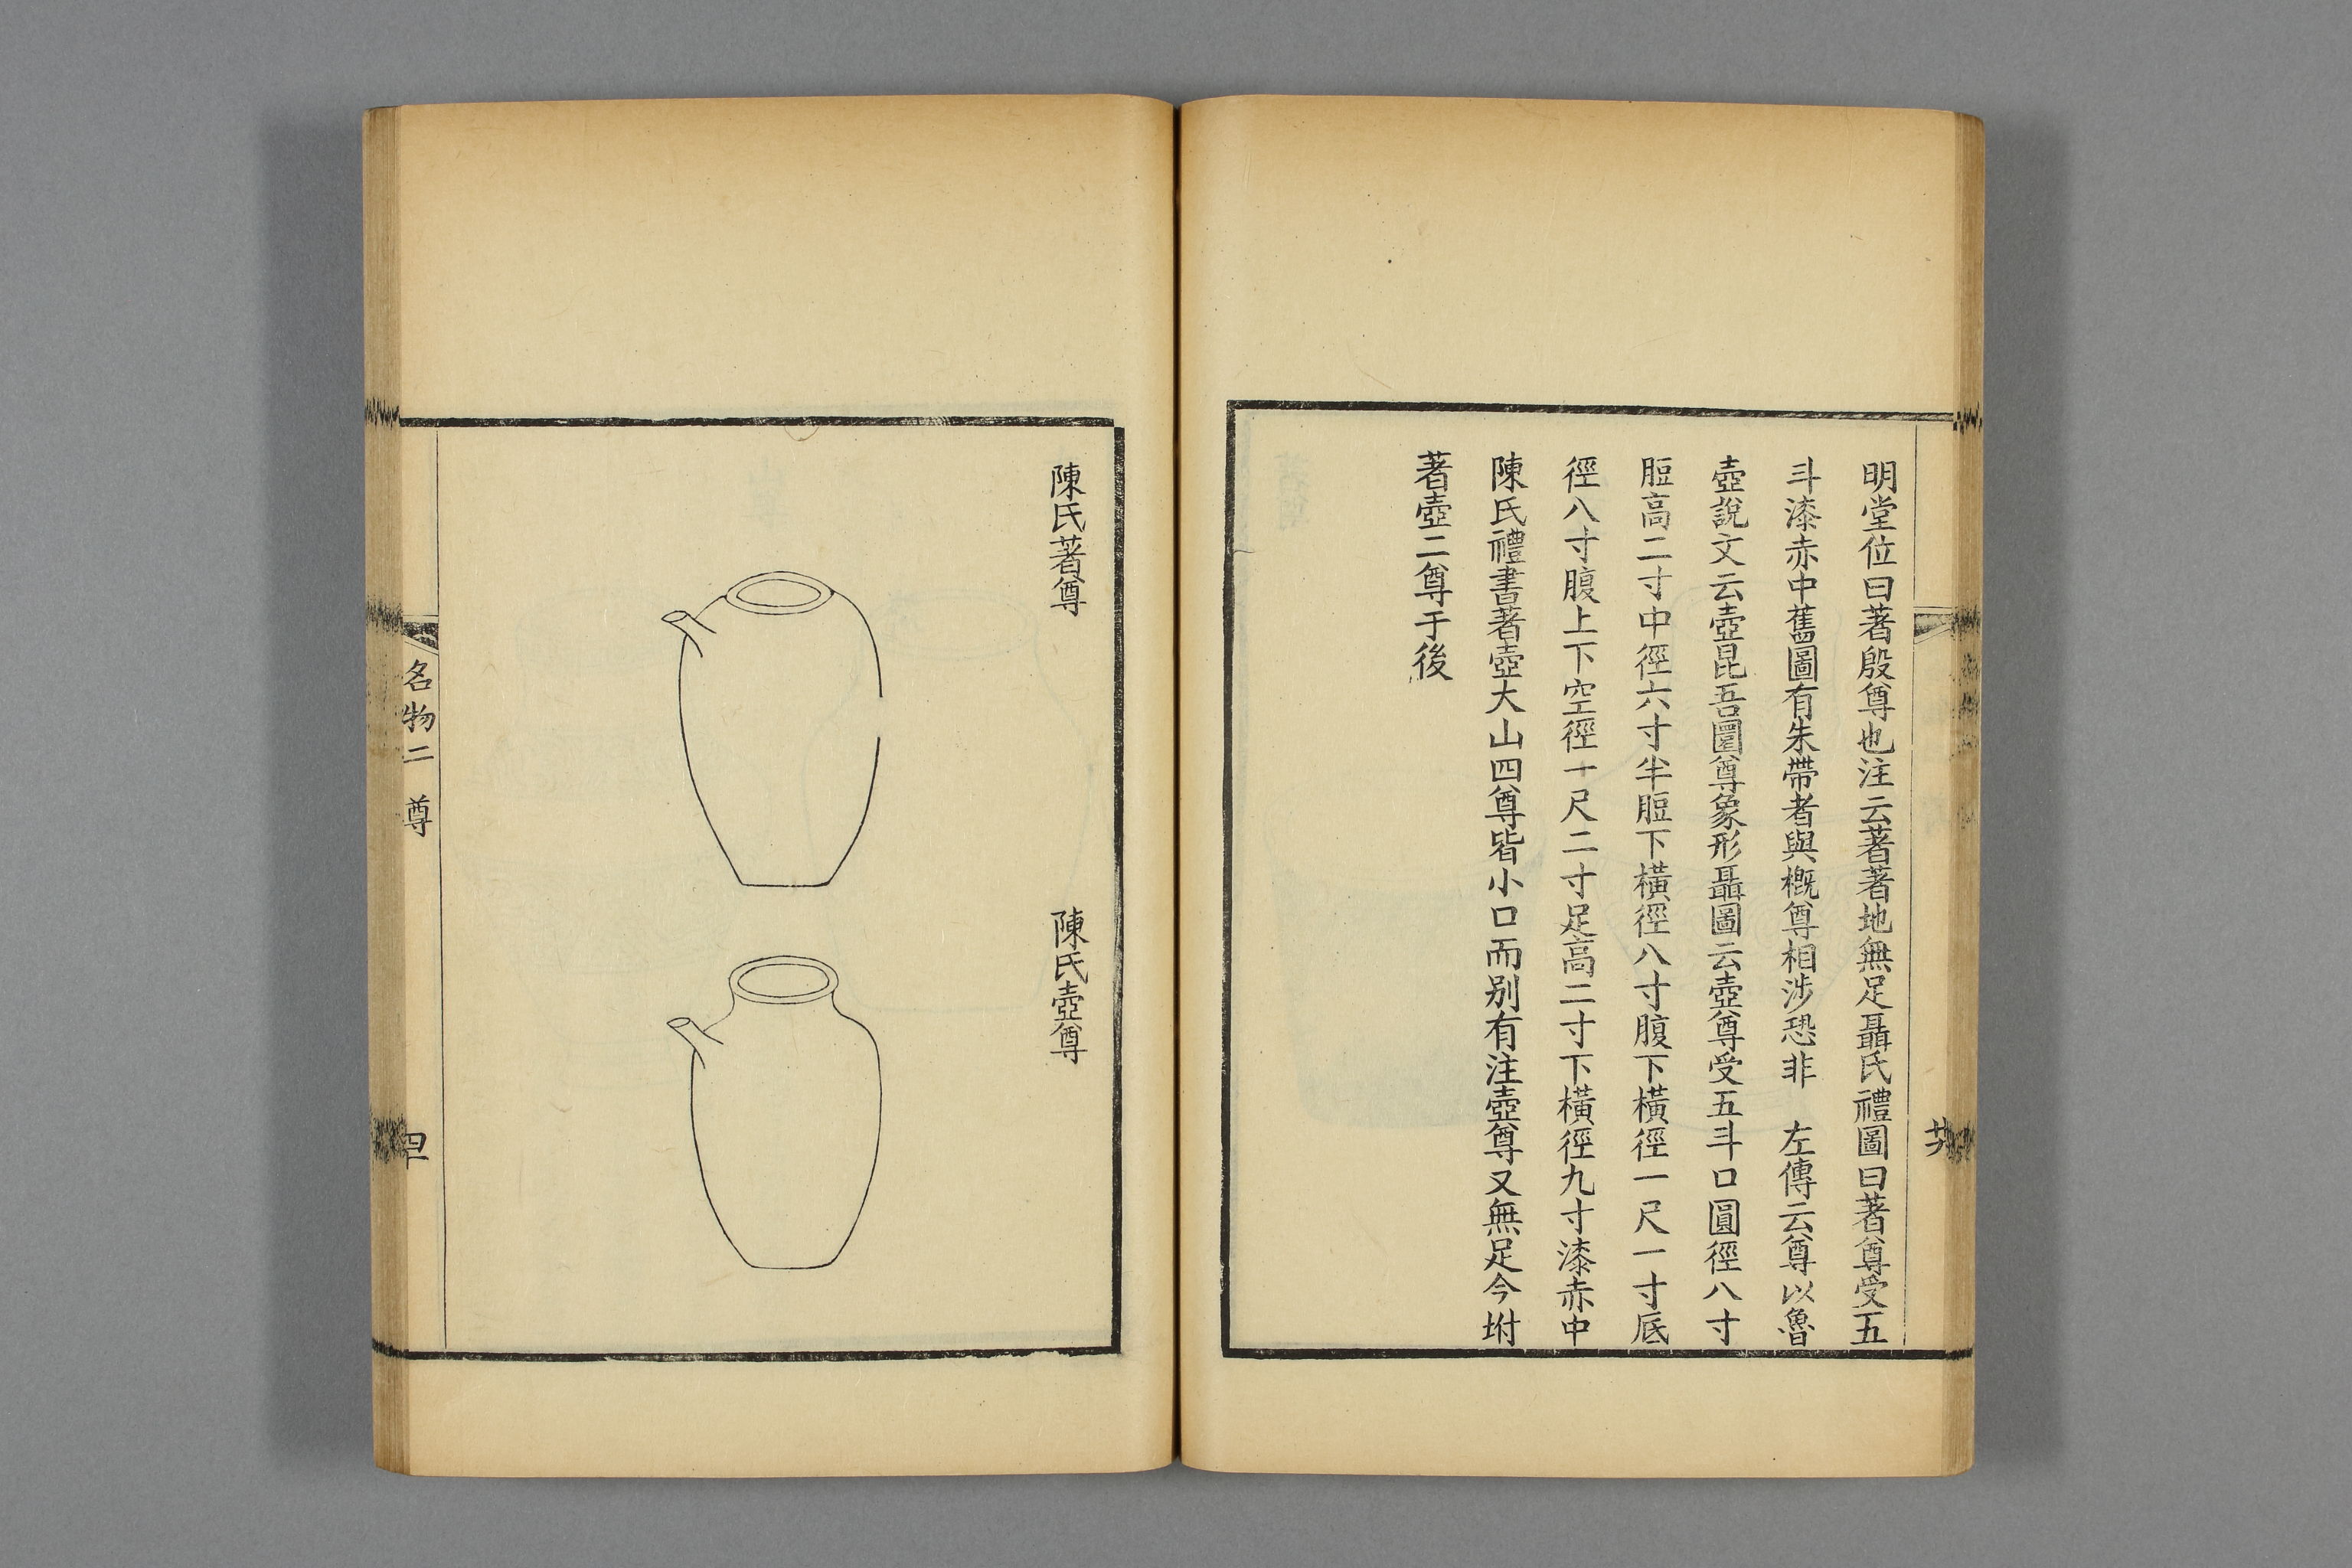 明堂位曰著殷尊也注云著著地無足聶氏禮圖曰著尊受五
斗漆赤中舊圖有朱帶者與概尊相涉恐非　左傳云尊以魯
壺說文云壺昆吾圜尊象形聶圖云壺尊受五斗口圓徑八寸
脰高二寸中徑六寸半脰下橫徑八寸腹下橫徑一尺一寸底
徑八寸腹上下空徑一尺二寸足高二寸下橫徑九寸漆赤中
陳氏禮書著壺大山四尊皆小口而别有注壺尊又無足今坿
著壺二尊于後
陳氏著尊
陳氏壺尊
名物二　尊